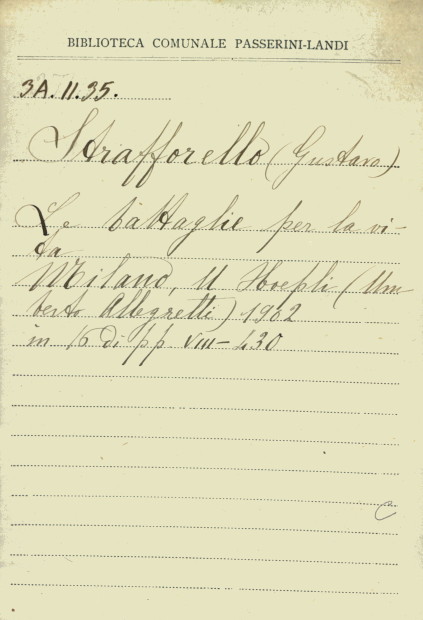 BIBLIOTECA COMUNALE PASSERINI-LANDI
3A.11.35.
Strafforello (Gustavo)
Le battaglie per la vi-
ta
Milano, U Hoepli (Um
berto Allegretti) 1902
in 16 di pp VIII-430